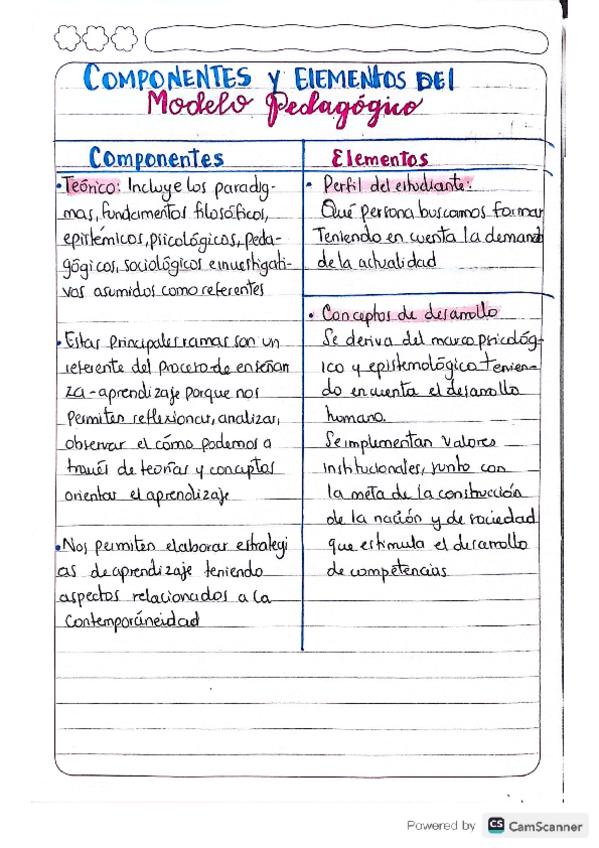 COMPONENTES Y ELEMENTOS DEL
Modelo Pedagógico
Componentes
• Teórico: Incluye los paradig-
mas, fundamentos filosóficos,
epistémicos, psicológicos, peda-
gógicos, sociológicos e investigati-
vos asumidos como referentes
• Estas principales ramas son un
referente del proceso de enseñan
za - aprendizaje porque nos
permiten reflexionar, analizar,
observar el cómo podemos a
través de teorías y conceptos
orientar el aprendizaje
• Nos permiten elaborar estrategi
as de aprendizaje teniendo
aspectos relacionados a la
contemporáneidad
Elementos
• Perfil del estudiante:
Qué persona buscamos formar
Teniendo en cuenta la demanda
de la actualidad
• Conceptos de desarrollo
Se deriva del marco psicológ-
ico y epistemológico tenien-
do en cuenta el desarrollo
humano.
Se implementan valores
institucionales, junto con
la meta de la construcción
de la nación y de sociedad
que estimula el desarrollo
de competencias
Powered by CS CamScanner